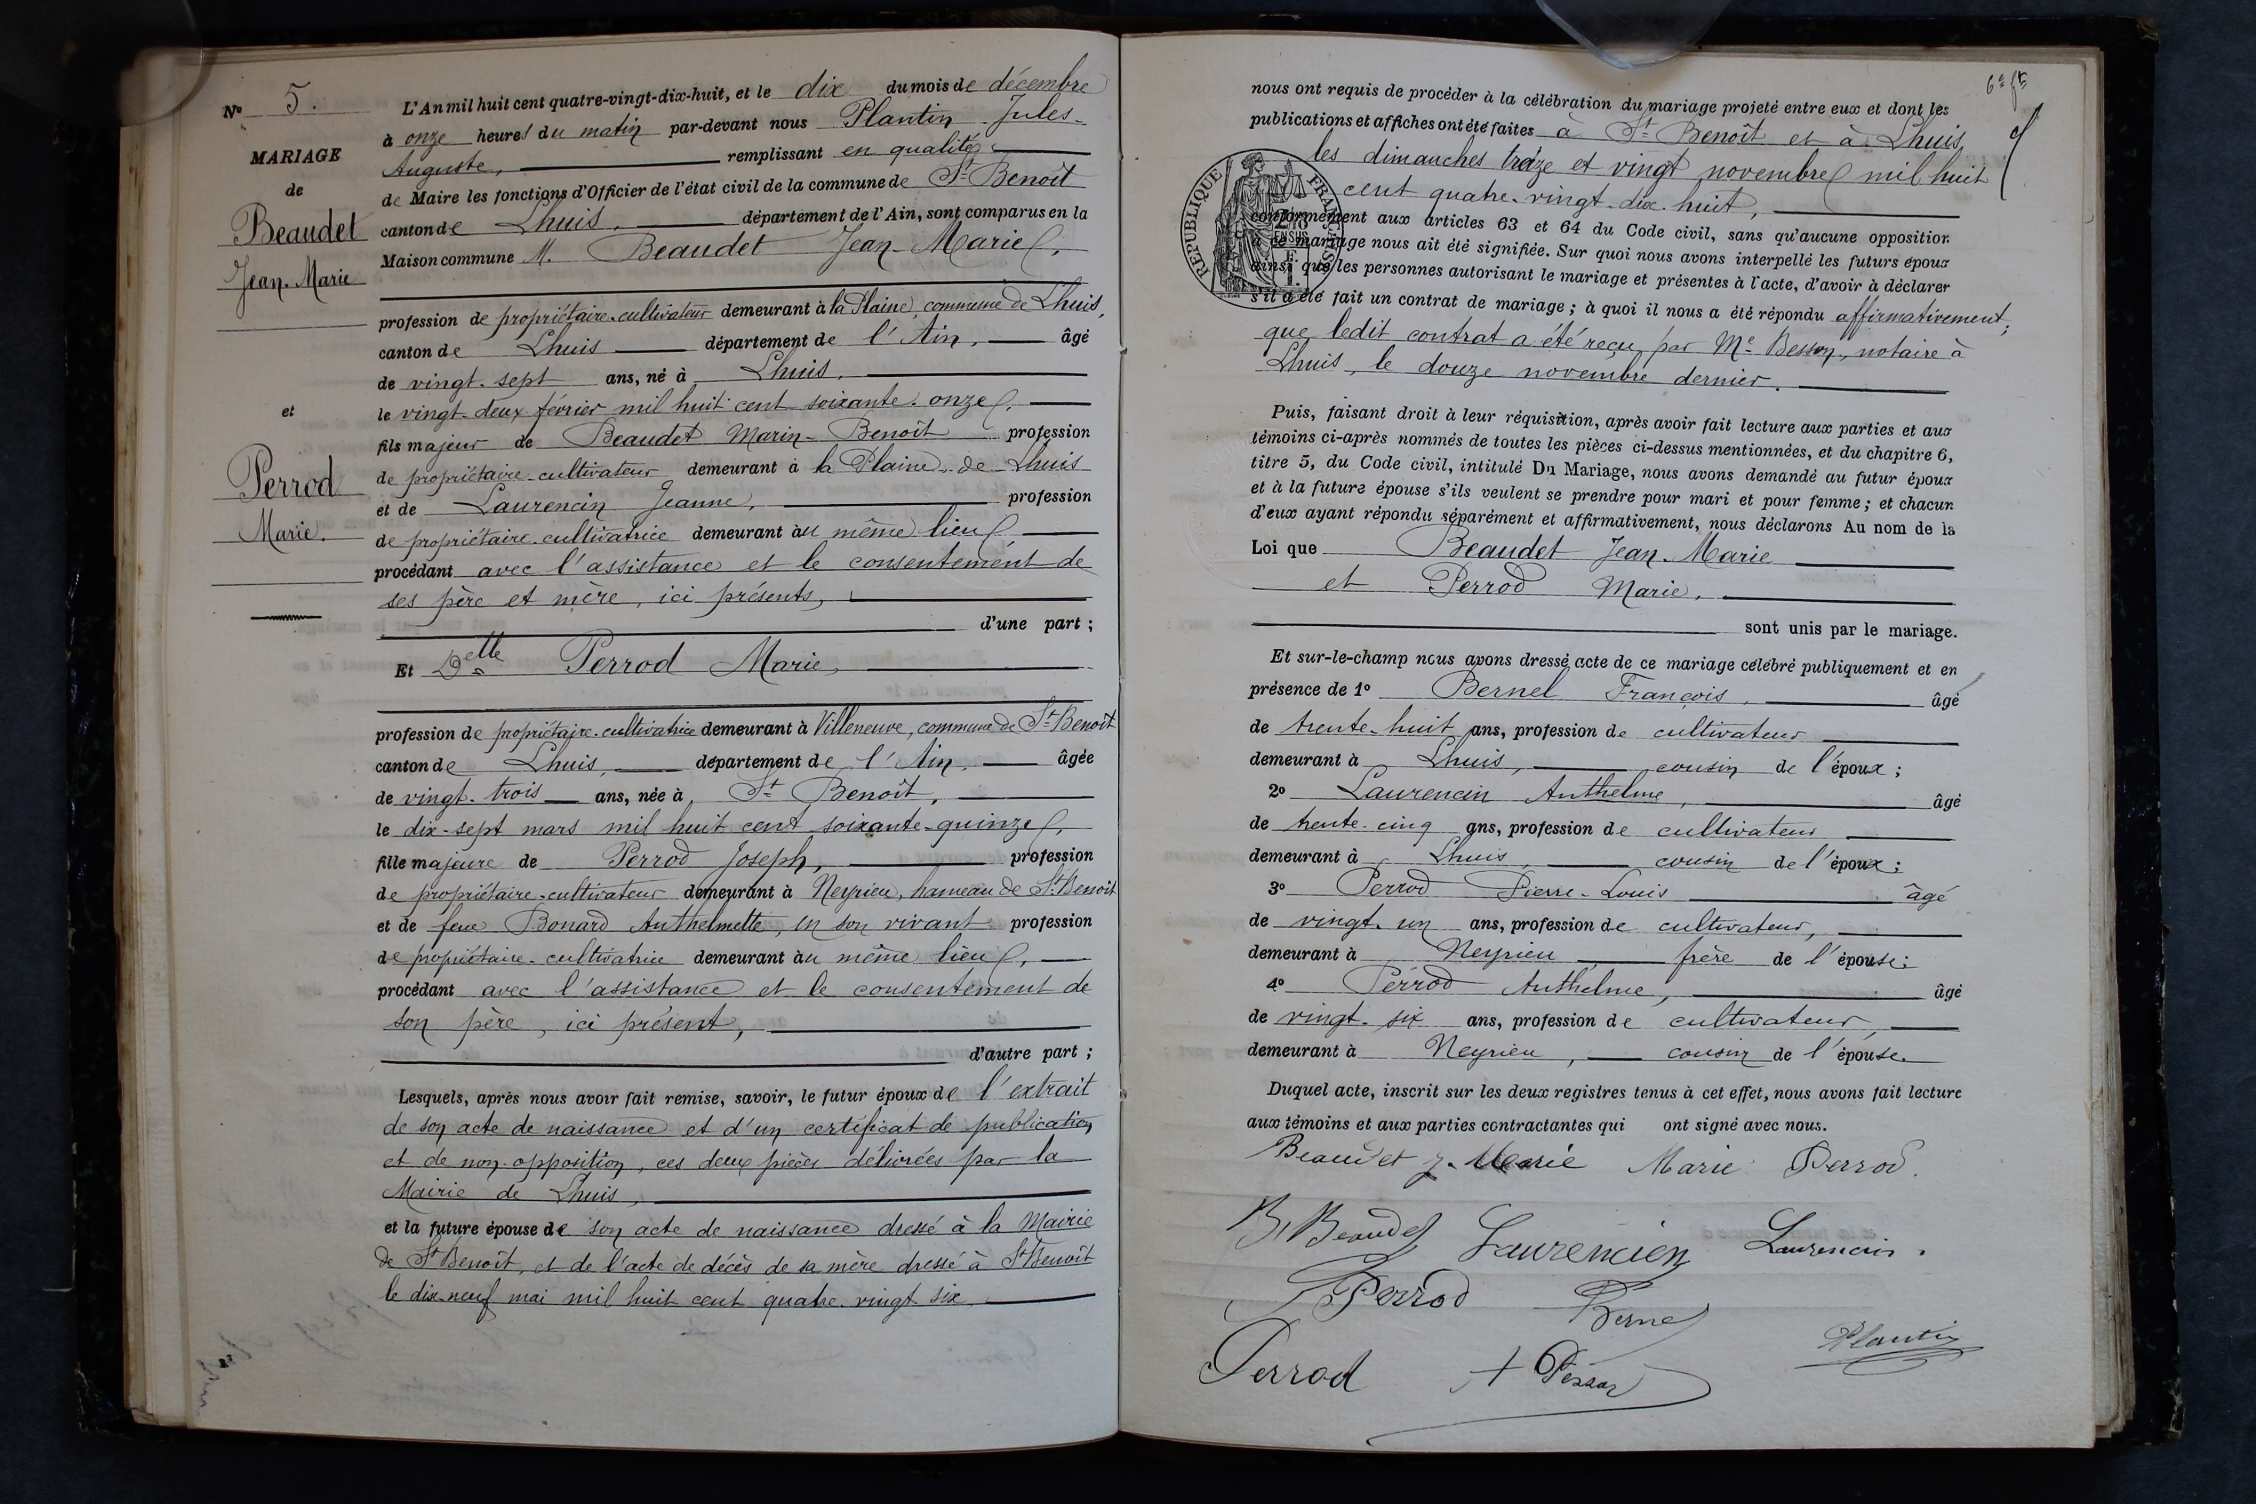 N° 5.
MARIAGE
de
Beaudet
Jean-Marie
et
Perrod
Marie.
L'An mil huit cent quatre-vingt-dix-huit, et le dix du mois de décembre
à onze heures du matin par-devant nous Plantin Jules-
Auguste, remplissant en qualité
de Maire les fonctions d'Officier de l'état civil de la commune de St Benoît
canton de Lhuis, département de l'Ain, sont comparus en la
Maison commune M. Beaudet Jean-Marie,
profession de propriétaire-cultivateur demeurant à la Plaine, commune de Lhuis,
canton de Lhuis département de l'Ain, âgé
de vingt-sept ans, né à Lhuis,
le vingt-deux février mil huit cent soixante-onze,
fils majeur de Beaudet Marin-Benoît profession
de propriétaire-cultivateur demeurant à la Plaine de Lhuis
et de Laurencin Jeanne, profession
de propriétaire-cultivatrice demeurant au même lieu
procédant avec l'assistance et le consentement de
ses père et mère, ici présents,
d'une part ;
Et Delle Perrod Marie
profession de propriétaire-cultivatrice demeurant à Villeneuve, commune de St Benoît
canton de Lhuis, département de l'Ain, âgée
de vingt-trois ans, née à St Benoît,
le dix-sept mars mil huit cent soixante-quinze,
fille majeure de Perrod Joseph, profession
de propriétaire-cultivateur demeurant à Neyrieu, hameau de St Benoît
et de feue Bonard Anthelmette, en son vivant profession
de propriétaire-cultivatrice demeurant au même lieu,
procédant avec l'assistance et le consentement de
son père, ici présent,
d'autre part ;
Lesquels, après nous avoir fait remise, savoir, le futur époux de l'extrait
de son acte de naissance et d'un certificat de publication
et de non-opposition, ces deux pièces délivrées par la
Mairie de Lhuis,
et la future épouse de son acte de naissance dressé à la Mairie
de St Benoît, et de l'acte de décès de sa mère dressé à St Benoît
le dix-neuf mai mil huit cent quatre-vingt six,
nous ont requis de procéder à la célébration du mariage projeté entre eux et dont les
publications et affiches ont été faites à St Benoît et à Lhuis,
les dimanches treize et vingt novembre mil huit
cent quatre-vingt-dix-huit,
RÉPUBLIQUE FRANÇAISE
conformément aux articles 63 et 64 du Code civil, sans qu'aucune opposition
à ce mariage nous ait été signifiée. Sur quoi nous avons interpellé les futurs époux
ainsi que les personnes autorisant le mariage et présentes à l'acte, d'avoir à déclarer
s'il a été fait un contrat de mariage ; à quoi il nous a été répondu affirmativement;
que ledit contrat a été reçu par Me Besson, notaire à
Lhuis, le douze novembre dernier.
Puis, faisant droit à leur réquisition, après avoir fait lecture aux parties et aux
témoins ci-après nommés de toutes les pièces ci-dessus mentionnées, et du chapitre 6,
titre 5, du Code civil, intitulé Du Mariage, nous avons demandé au futur époux
et à la future épouse s'ils veulent se prendre pour mari et pour femme ; et chacun
d'eux ayant répondu séparément et affirmativement, nous déclarons Au nom de la
Loi que Beaudet Jean-Marie
et Perrod Marie,
sont unis par le mariage.
Et sur-le-champ nous avons dressé acte de ce mariage célébré publiquement et en
présence de 1° Bernel François, âgé
de trente-huit ans, profession de cultivateur
demeurant à Lhuis, cousin de l'époux ;
2° Laurencin Anthelme, âgé
de trente-cinq ans, profession de cultivateur
demeurant à Lhuis, cousin de l'époux ;
3° Perrod Pierre-Louis âgé
de vingt-un ans, profession de cultivateur,
demeurant à Neyrieu, frère de l'épouse;
4° Perrod Anthelme, âgé
de vingt-six ans, profession de cultivateur,
demeurant à Neyrieu, cousin de l'épouse.
Duquel acte, inscrit sur les deux registres tenus à cet effet, nous avons fait lecture
aux témoins et aux parties contractantes qui ont signé avec nous.
Beaudet J. Marie Marie Perrod
B. Beaudet Laurencien Laurencin.
Perrod Bernel
Plantin
Perrod